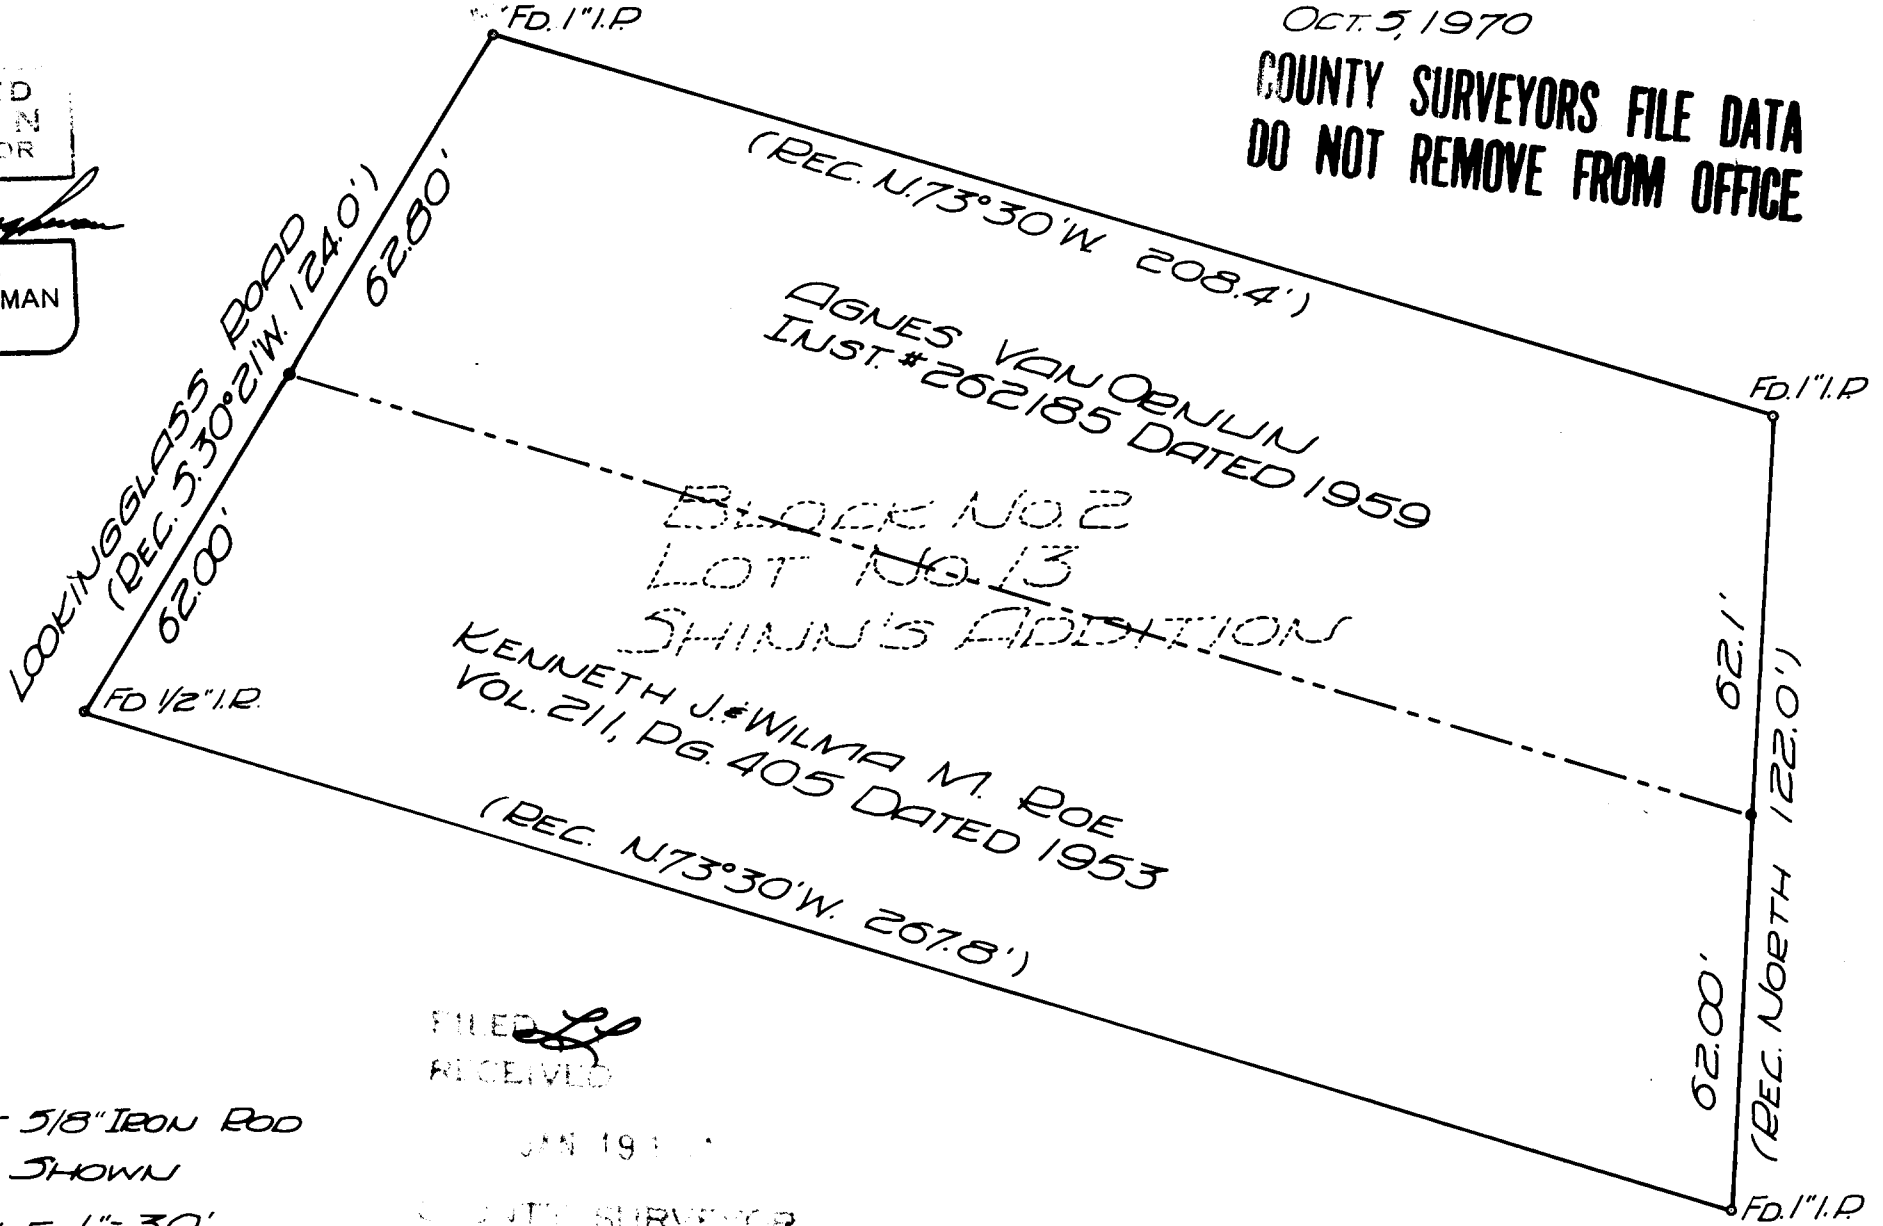 FD. 1" I.P.
OCT. 5, 1970
COUNTY SURVEYORS FILE DATA
DO NOT REMOVE FROM OFFICE
MAN
LOOKINGGLASS ROAD
(REC. S.30°21'W. 124.0')
62.80'
62.00'
(REC. N.73°30'W. 208.4')
AGNES VAN
INST. #262185 DATED 1959
FD. 1" I.P.
BLOCK NO. 2
LOT NO. 13
SHINN'S ADDITION
FD 1/2" I.P.
KENNETH J. & WILMA M. ROE
VOL. 211, PG. 405 DATED 1953
(REC. N.73°30'W. 267.8')
62.1'
(REC. NORTH 122.0')
62.00'
FILED
RECEIVED
JAN 19
COUNTY SURVEYOR
5/8" IRON ROD
SHOWN
1"=30'
FD. 1" I.P.